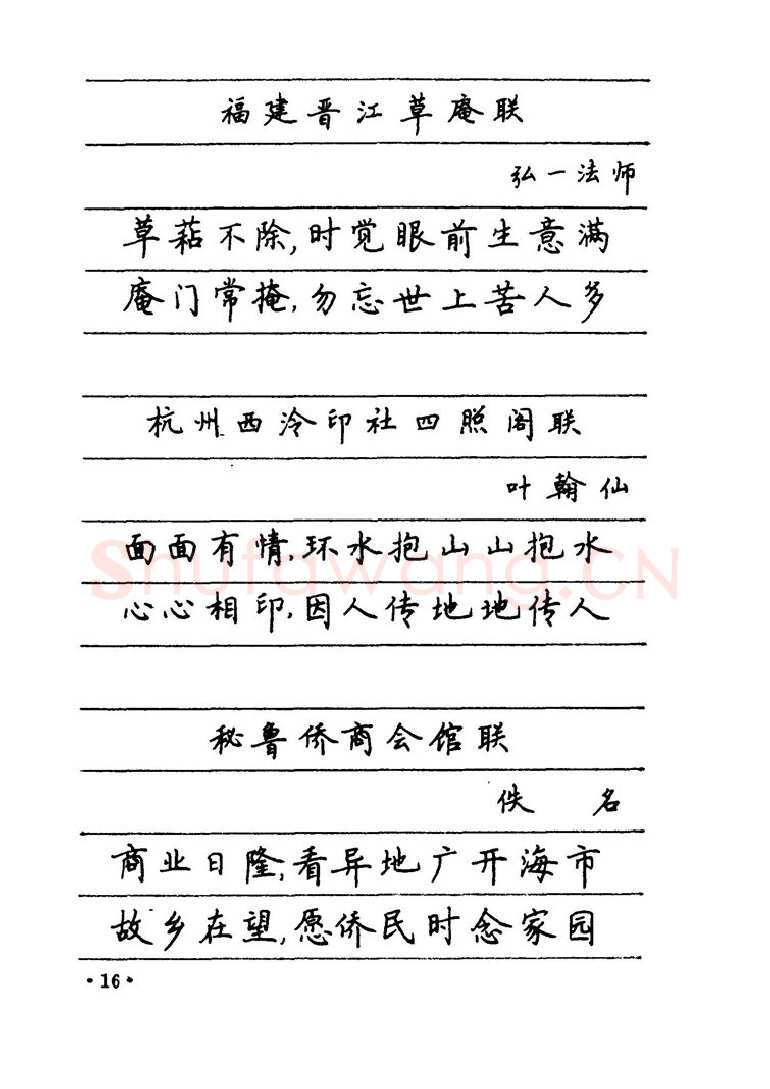 福建晋江草庵联
弘一法师
草萜不除,时觉眼前生意满
庵门常掩,勿忘世上苦人多
杭州西泠印社四照阁联
叶翰仙
面面有情,环水抱山山抱水
心心相印,因人传地地传人
shufawang.CN
秘鲁侨商会馆联
佚 名
商业日隆,看异地广开海市
故乡在望,愿侨民时念家园
·16·